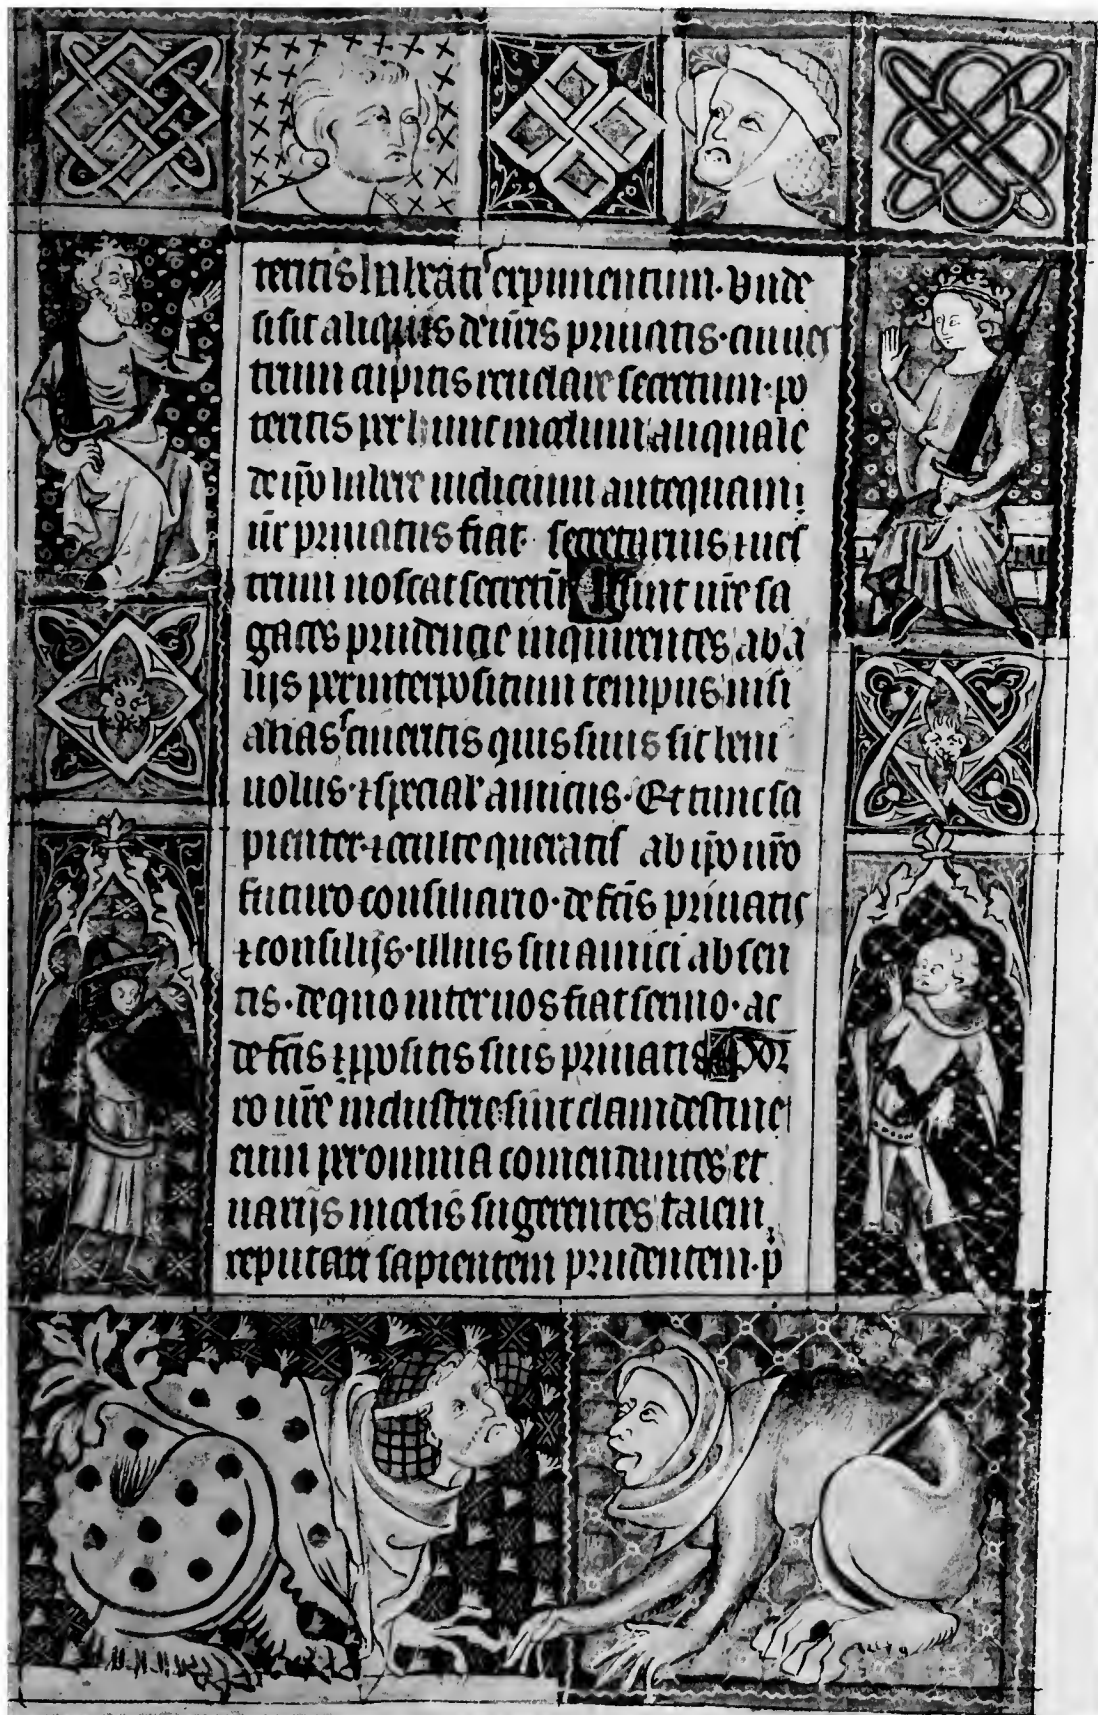 teritis habeatur experimentum. Unde
si sit aliquis de uris priuatis. cui ues
trum cupitis reuelare secretum. po
teritis per hunc modum aliquale
de ipo habere iudicium antequam
ur priuatus fiat secretarius ⁊ ues
trum noscat secretū sint ure sa
gaces prudencie inquirentes ab a
lijs per interpositum tempus nisi
alias sciueritis quis suus sit beni
uolus. ⁊ special' amicus. Et tunc sa
pienter. ⁊ oculte queratis ab ipo uro
futuro consiliario. de fcis priuatis
⁊ consilijs. illius sui amici absen
tis. de quo inter uos fiat sermo. ac
de fcis ⁊ ppositis suis priuatis Por
ro ure industrie sint clamdestine
eum per omnia comendantes et
uarijs modis sugerentes talem
reputari sapientem prudentem. p